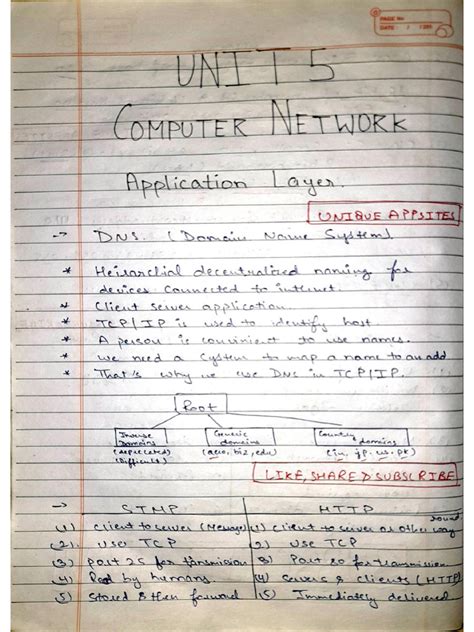 PAGE No
DATE
UNIT 5
COMPUTER NETWORK
Application Layer.
UNIQUE APPSITES
-> DNS. (Domain Name System).
* Heirarchial decentralized naming for
devices connected to internet.
* Client server application.
* TCP/IP is used to identify host.
* A person is convinient to use names.
* we need a System to map a name to an add
* That's why we use DNS in TCP/IP.
Root
Inverse Domains
Generic domains
Country domains
(Difficult)
biz, edu)
(in, jp, us, pk)
LIKE, SHARE & SUBSCRIBE
-> STMP HTTP
(1) Client to server (Message) (1) Client to server or other way
round
(2) Use TCP (2) Use TCP
(3) Port 25 for (3) Port 20 for transmission
(4) Read by humans. (4) Servers & clients (HTTP)
(5) Stored & then forward (5) Immediately delivered